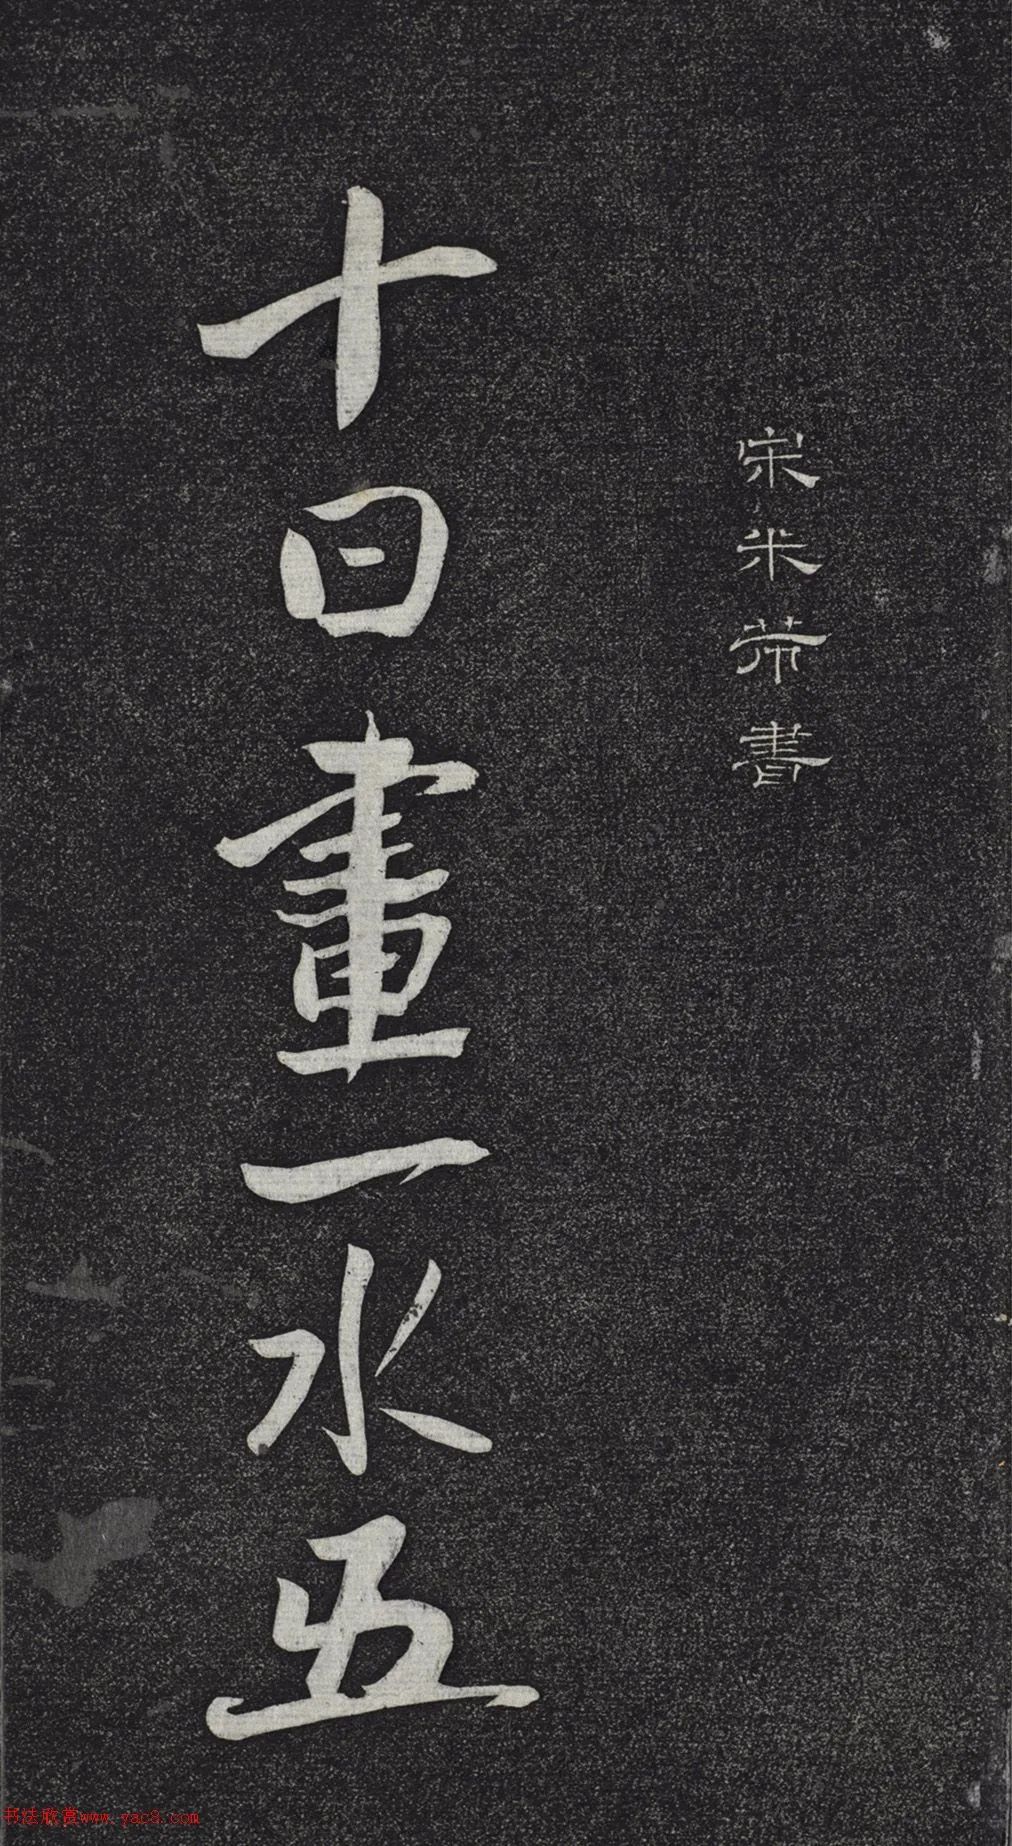 宋米芾書
十日畫一水五
书法欣赏www.yac8.com